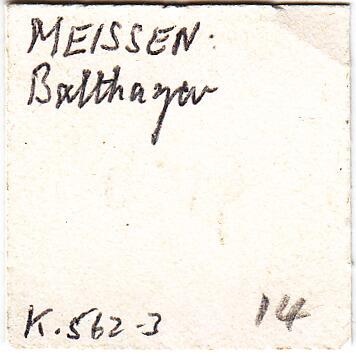 MEISSEN.
Balthazar
K.562-3 14